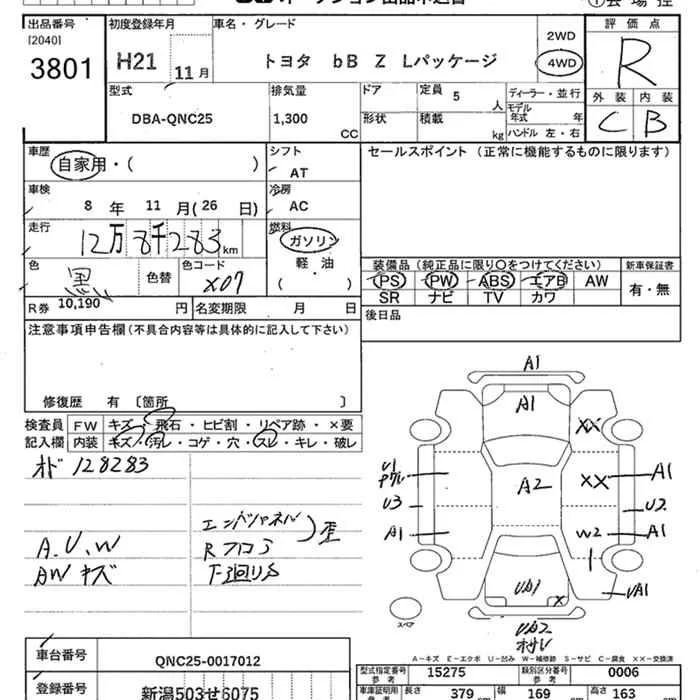 出品番号 初度登録年月 車名・グレード 評価点
[2040]
3801 H21 11月 トヨタ bB Z Lパッケージ 2WD 4WD R
型式 排気量 ドア 定員 5 人 ディーラー・並行 外装 内装
DBA-QNC25 1,300 CC 形状 積載 kg モデル年式 年 C B
ハンドル 左・右
車歴 シフト セールスポイント (正常に機能するものに限ります)
自家用・( ) AT
車検 冷房
8 年 11 月(26 日) AC
走行 燃料
12万8千283 km ガソリン
色 色替 色コード 軽・油 装備品(純正品に限り○をつけてください) 新車保証書
黒 X07 ( ) PS PW ABS エアB AW 有・無
SR ナビ TV カワ
R券 10,190 円 名変期限 月 日 後日品
注意事項申告欄(不具合内容等は具体的に記入して下さい)
修復歴 有 〔箇所 〕
検査員 FW キズ・飛石・ヒビ割・リペア跡・×要
記入欄 内装 キズ・汚レ・コゲ・穴・スレ・キレ・破レ
オド 128283
エンドパネル
A.U.W Rフロア 歪
AWキズ 下廻りS
A1
A1 XX
U1 A2 XX A1
U3 U2
A1 W2 A1
UB1 X UA1
スペア UB2
A−キズ E−エクボ U−凹み W−補修跡 S−サビ C−腐食 X−要交換 XX−交換済
車台番号 QNC25-0017012 型式指定番号 参考 15275 類別区分番号 参考 0006
登録番号 新潟503せ6075 車庫証明用 参考 長さ 379 cm 幅 169 cm 高さ 163 cm